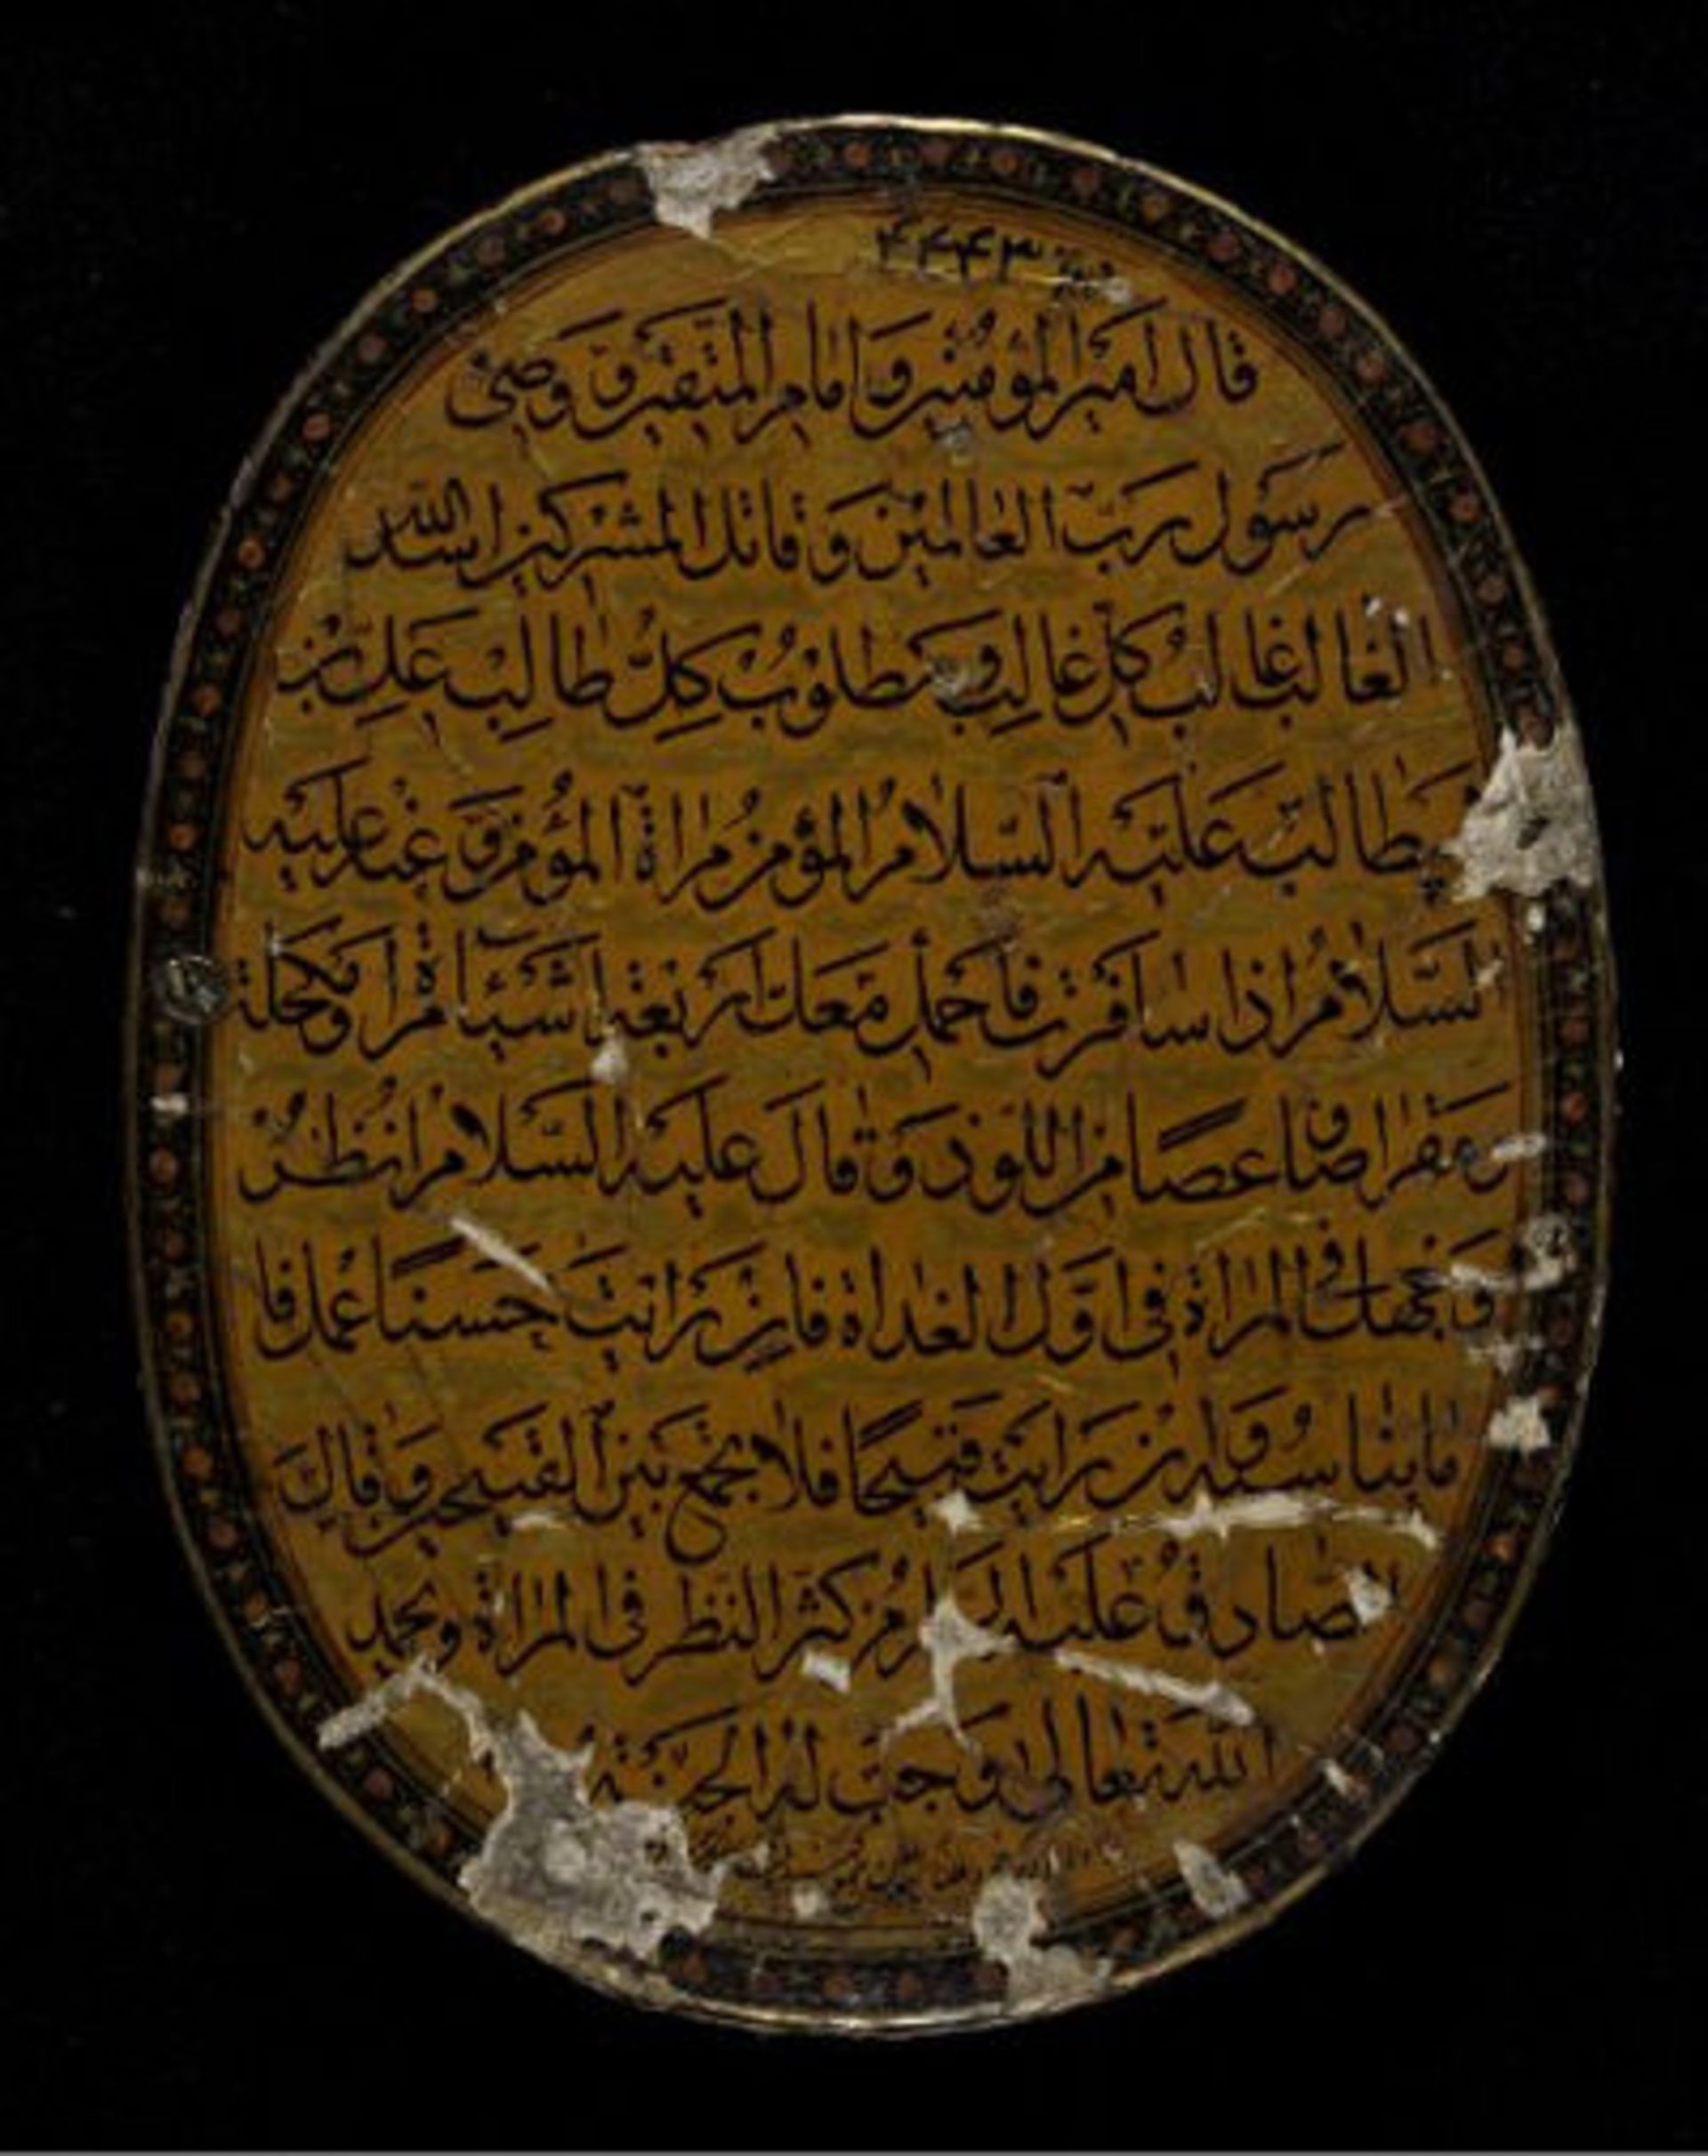 نمره ۴۴۴۳
قال امیر المؤمنین و امام المتقین و وصی
رسول رب العالمین و قاتل المشرکین اسد الله
الغالب غالب کل غالب و مطلوب کل طالب علی بن
ابیطالب علیه السلام المؤمن مراة المؤمن و عنه علیه
السلام اذا سافرت فاحمل معک اربعة اشیاء مراة و مکحلة
و مقراضا و عصا من اللوز و قال علیه السلام انظر
وجهک فی المراة فی اول الغداة فان رایت حسنا عمل فا
ما بنا سوء و ان رایت قبیحا فلا یجمع بین القبیحین و قال
الصادق علیه السلام من کثر النظر فی المراة و یحمد
الله تعالی وجبت له الجنة